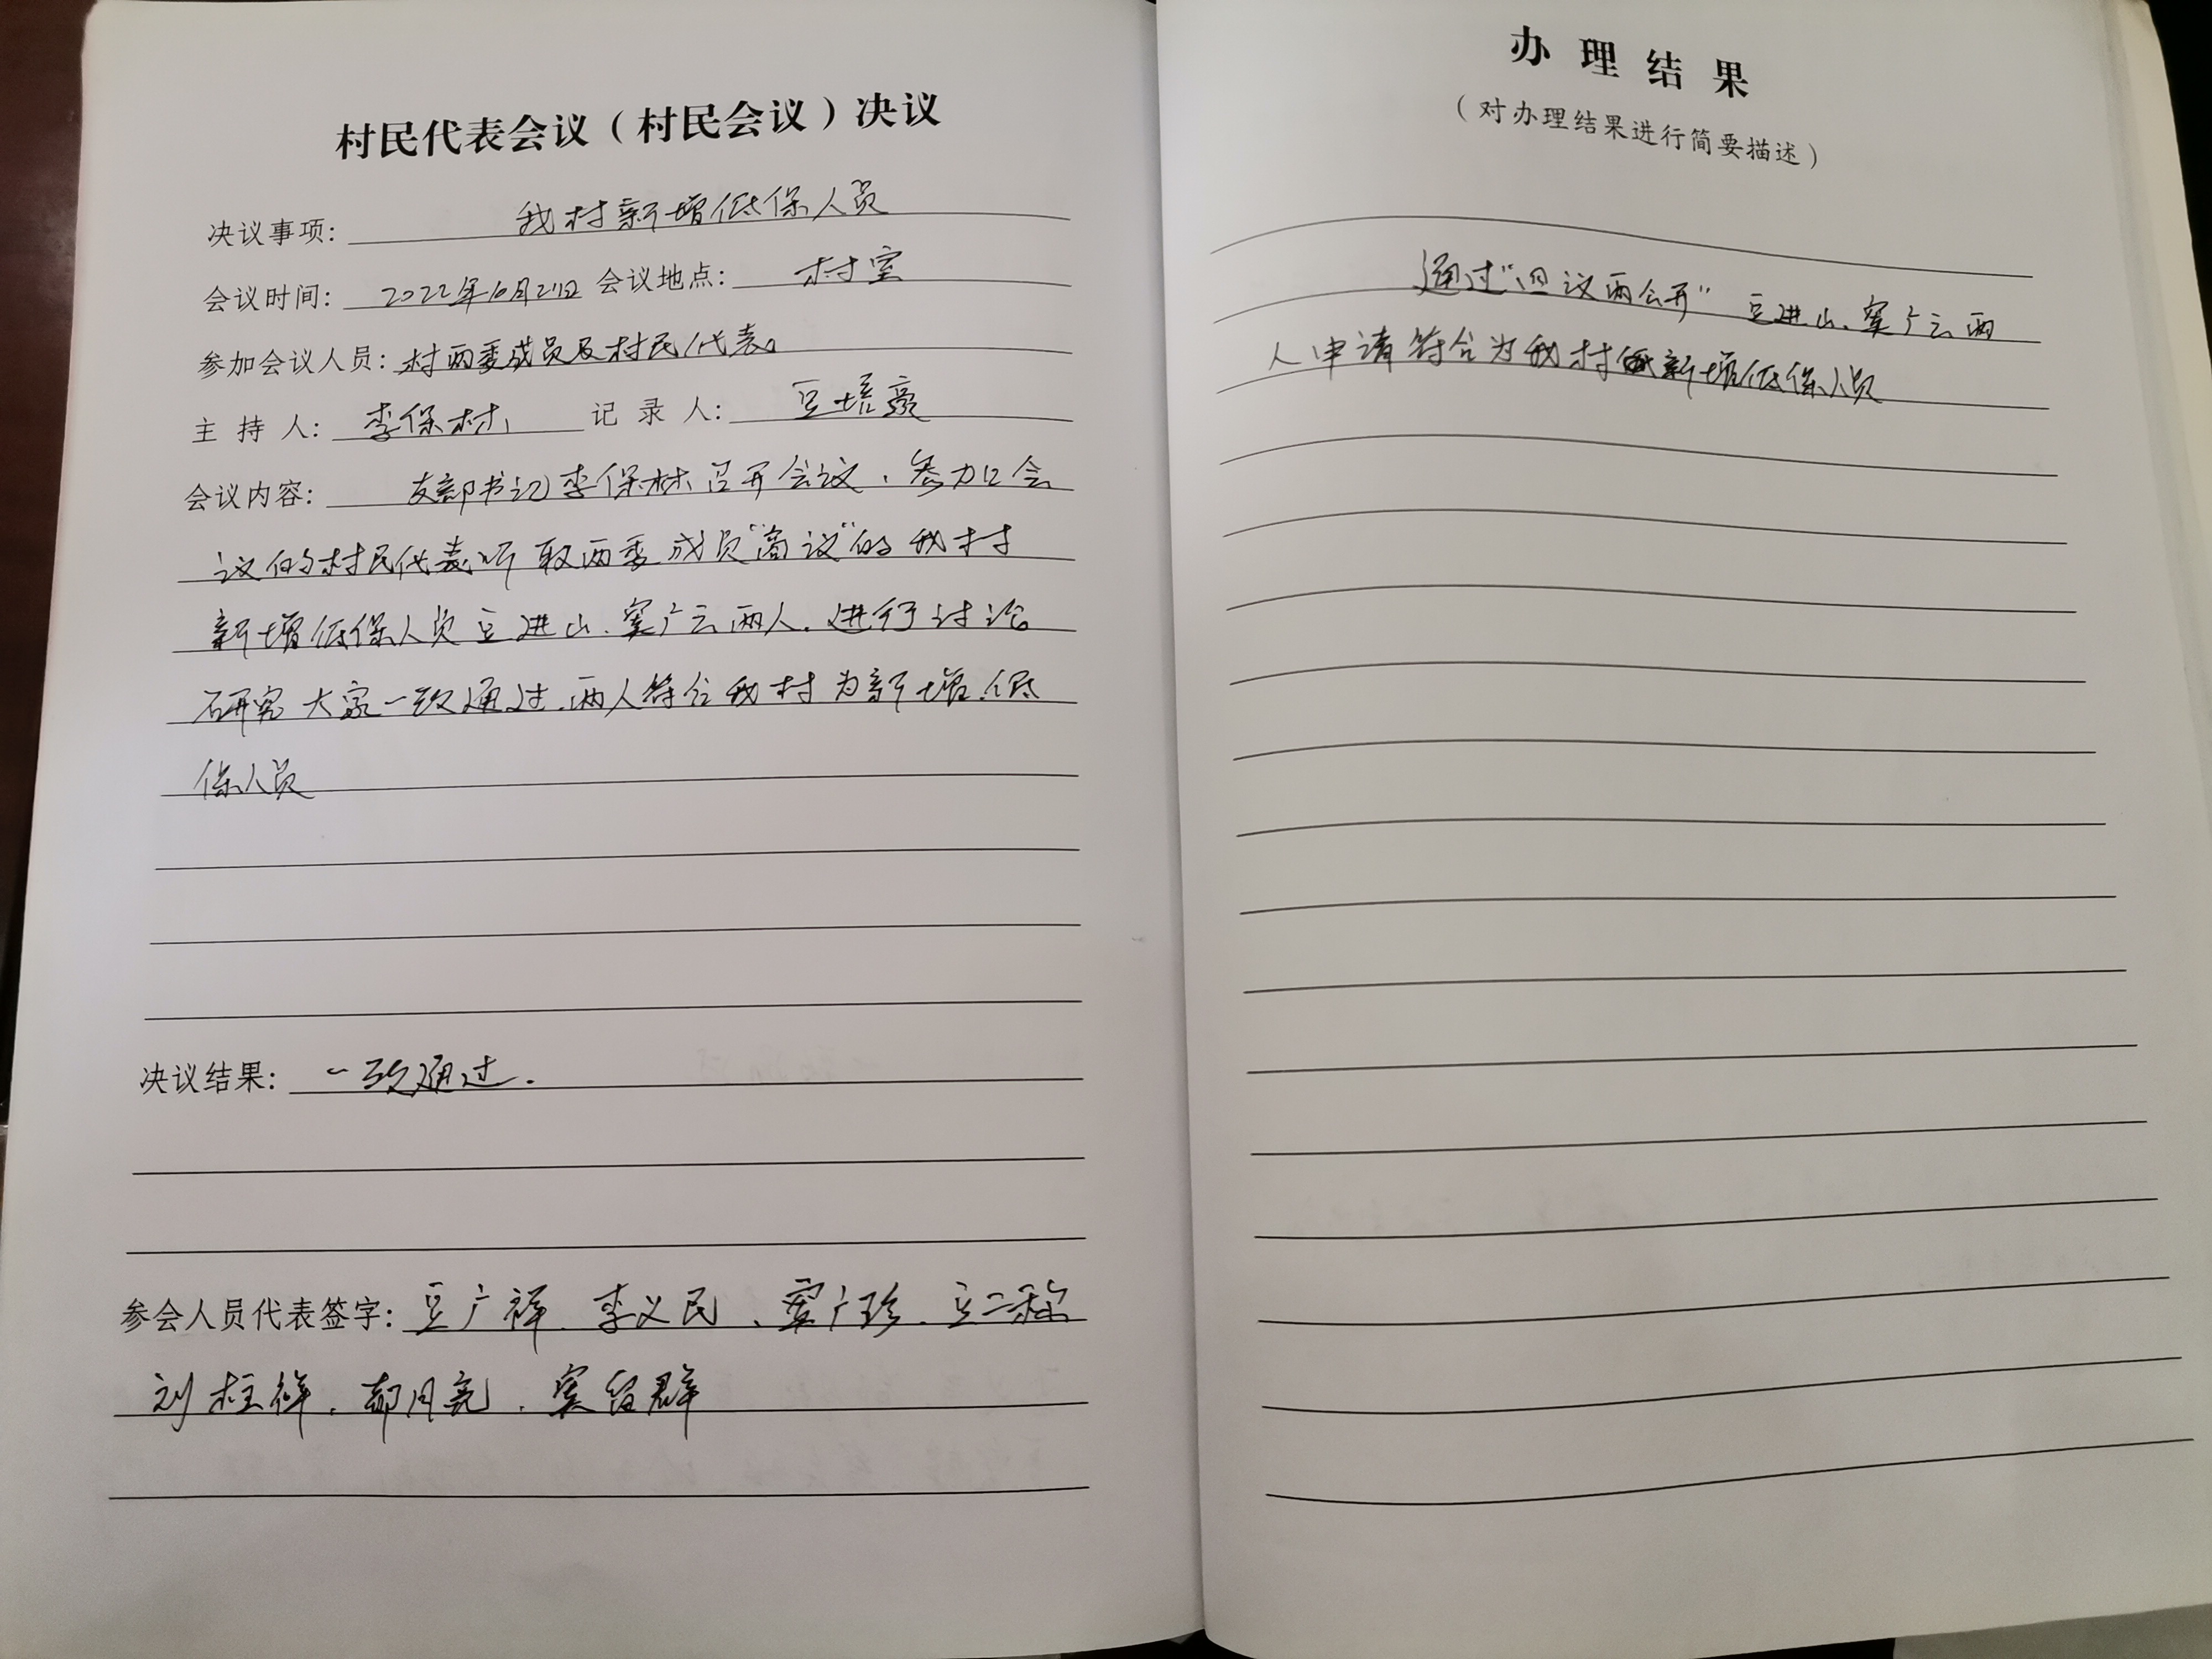 村民代表会议（村民会议）决议
决议事项: 我村新增低保人员
会议时间: 2022年10月21日 会议地点: 村室
参加会议人员: 村两委成员及村民代表。
主持人: 李保林 记录人: 豆培豪
会议内容: 支部书记李保林召开会议，参加会
议的村民代表听取两委成员“商议”的我村
新增低保人员豆进山、窦广云两人，进行讨论
研究大家一致通过，两人符合我村为新增低
保人员
决议结果: 一致通过.
参会人员代表签字: 豆广祥、李义民、窦广珍、豆二称
刘柱祥、郝月亮、窦留群
办理结果
（对办理结果进行简要描述）
通过“四议两公开” 豆进山、窦广云两
人申请符合为我村新增低保人员